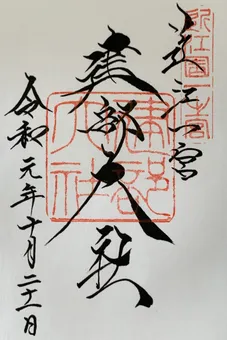 近江一宮
建部大社
令和元年十月二十一日
近江国一之宮
建部大社